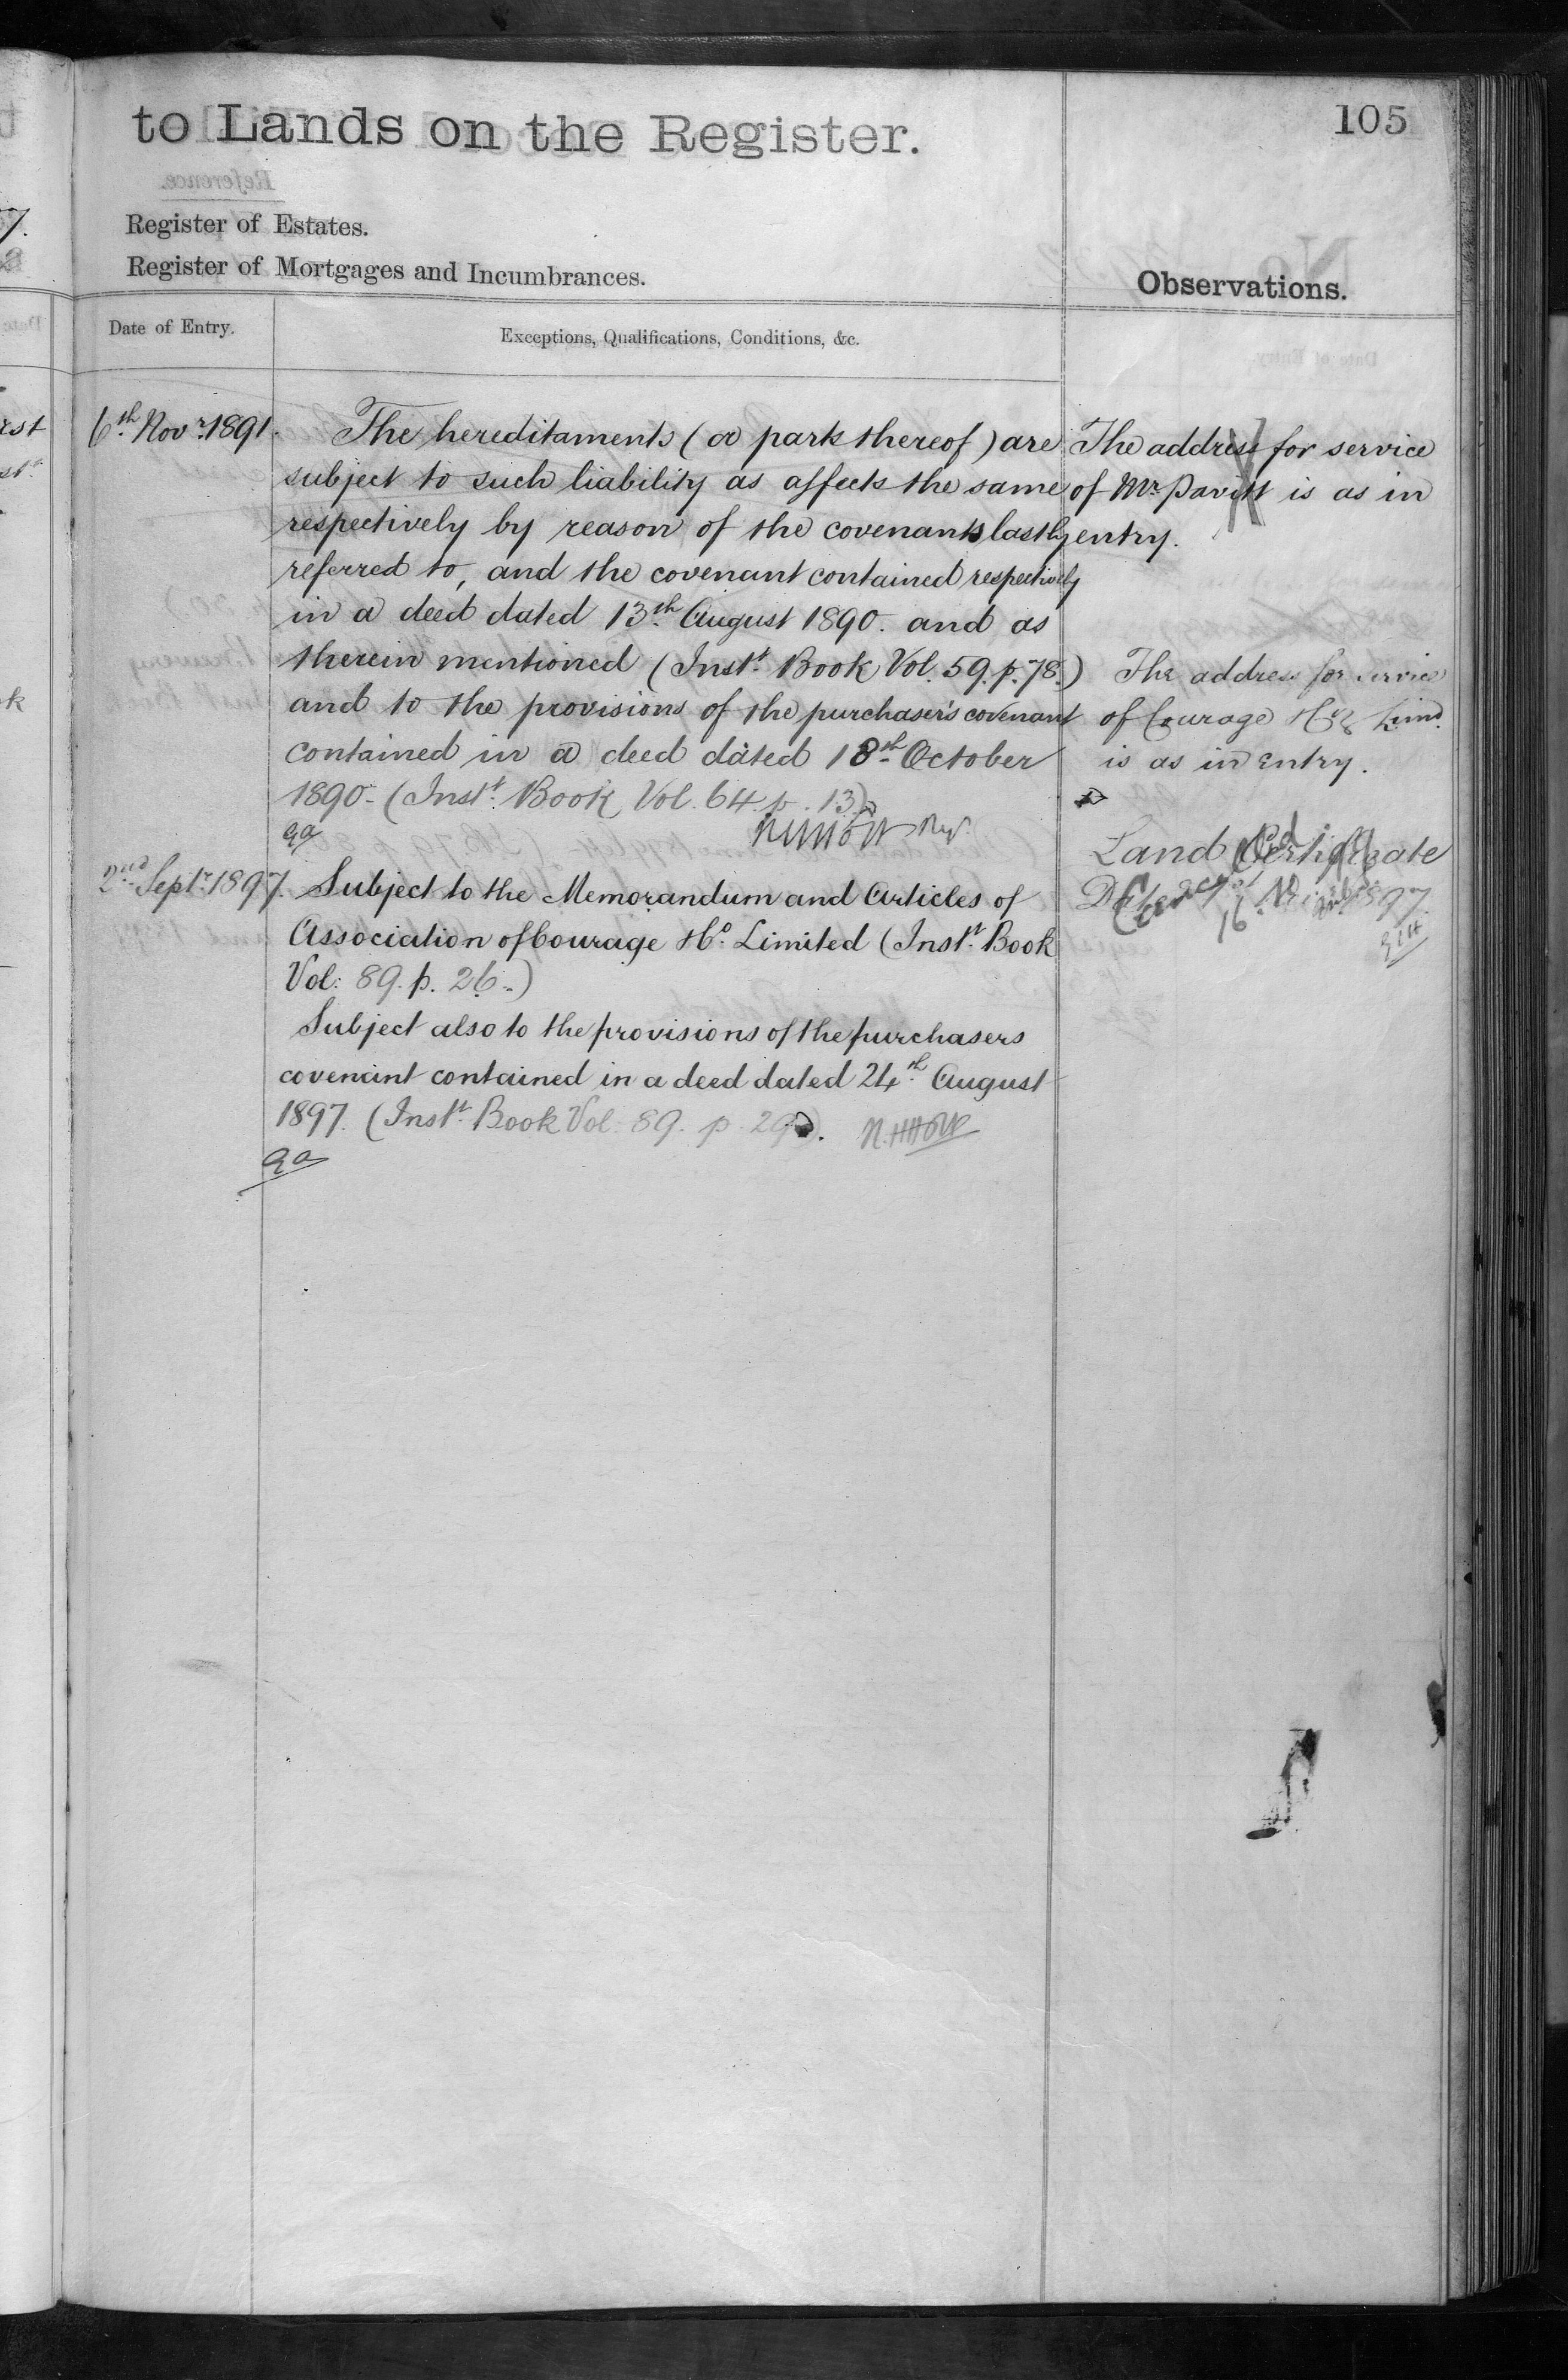 to Lands on the Register.
105
Register of Estates.
Register of Mortgages and Incumbrances.
Observations.
Date of Entry.
Exceptions, Qualifications, Conditions, &c.
6th Novr. 1891.
The hereditaments (or parts thereof) are
subject to such liability as affects the same
respectively by reason of the covenants lastly
referred to, and the covenant contained respectively
in a deed dated 13th August 1890. and as
therein mentioned (Instt. Book Vol. 59. p. 78.)
and to the provisions of the purchaser's covenant
contained in a deed dated 18th October
1890. (Instt. Book Vol. 64. p. 13)
2nd Septr. 1897.
Subject to the Memorandum and Articles of
Association of Courage & Co. Limited (Instt. Book
Vol: 89. p. 26.)
Subject also to the provisions of the purchasers
covenant contained in a deed dated 24th August
1897. (Instt. Book Vol: 89. p. 29).
The address for service
of Mr. Pavitt is as in
entry.
The address for service
of Courage & Co. Limd.
is as in entry.
Land Certificate